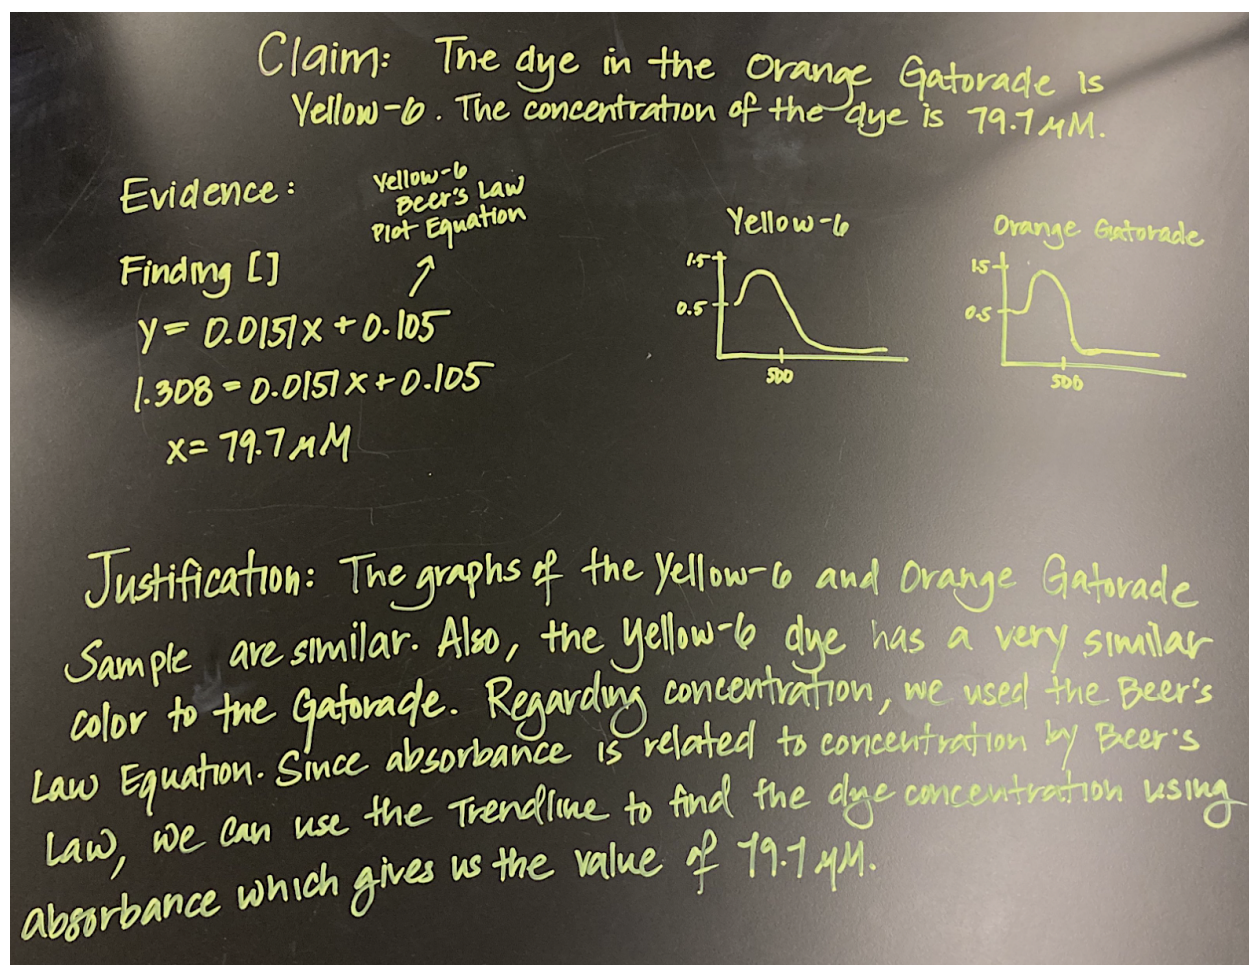 Claim: The dye in the Orange Gatorade is
Yellow-6. The concentration of the dye is 79.7 μM.
Evidence:
Yellow-6
Beer's Law
Plot Equation
Finding []
y= 0.0151x + 0.105
1.308 = 0.0151x + 0.105
x= 79.7 μM
Yellow-6
1.5
0.5
500
Orange Gatorade
1.5
0.5
500
Justification: The graphs of the Yellow-6 and Orange Gatorade
Sample are similar. Also, the yellow-6 dye has a very similar
color to the Gatorade. Regarding concentration, we used the Beer's
Law Equation. Since absorbance is related to concentration by Beer's
Law, we can use the Trendline to find the dye concentration using
absorbance which gives us the value of 79.7 μM.